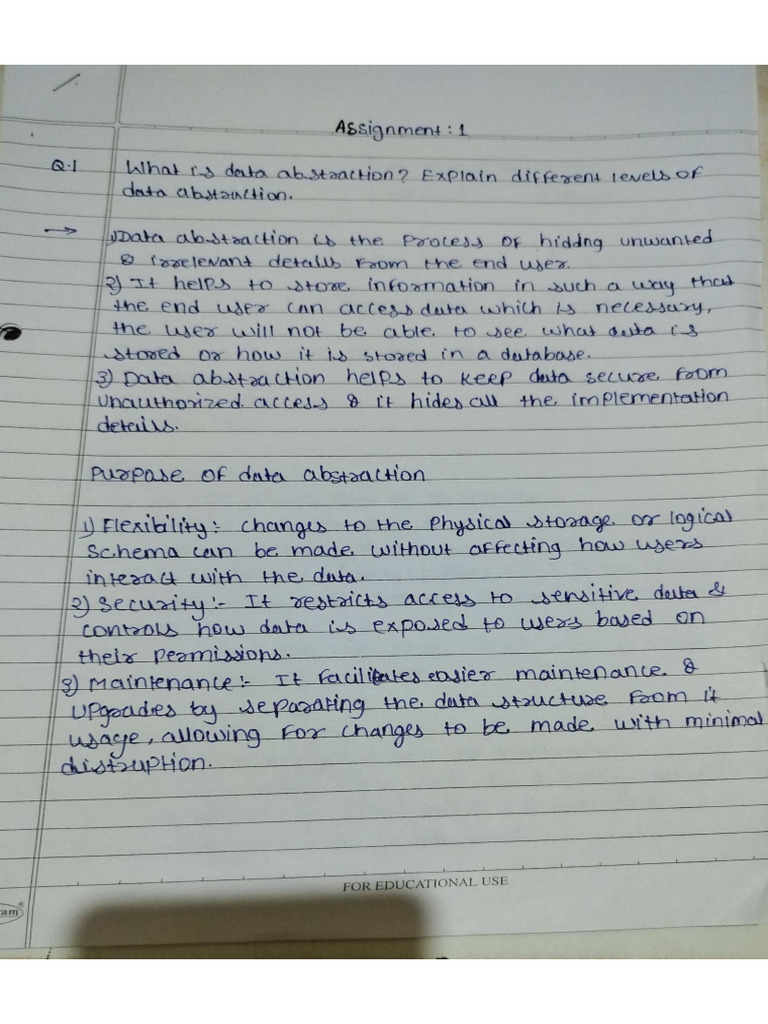 Assignment : 1
Q.1 What is data abstraction? Explain different levels of
data abstraction.
→ 1) Data abstraction is the process of hiddng unwanted
& irrelevant details from the end user.
2) It helps to store information in such a way that
the end user can access data which is necessary,
the user will not be able to see what data is
stored or how it is stored in a database.
3) Data abstraction helps to keep data secure from
unauthorized access & it hides all the implementation
details.
Purpose of data abstraction
1) Flexibility :- changes to the physical storage or logical
schema can be made without affecting how users
interact with the data.
2) Security :- It restricts access to sensitive data &
controls how data is exposed to users based on
their permissions.
3) Maintenance :- It facilitates easier maintenance &
upgrades by separating the data structure from it
usage, allowing for changes to be made with minimal
distruption.
FOR EDUCATIONAL USE
am